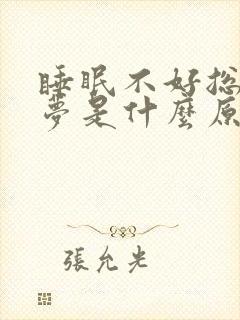 睡眠不好总
夢是什麼原
張允光